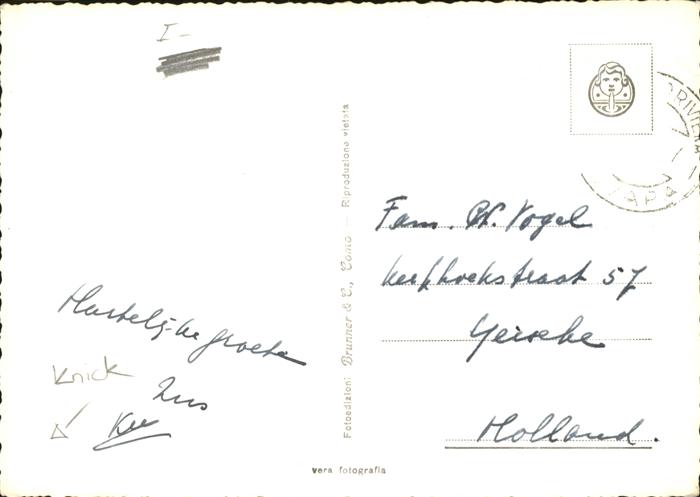 I-
Hartelijke groeten
Knick
Zus
Kee
Fotoedizioni Brunner & C., Como — Riproduzione vietata
Fam. W. Vogel
Kerkhoekstraat 57
Yerseke
Holland.
vera fotografia